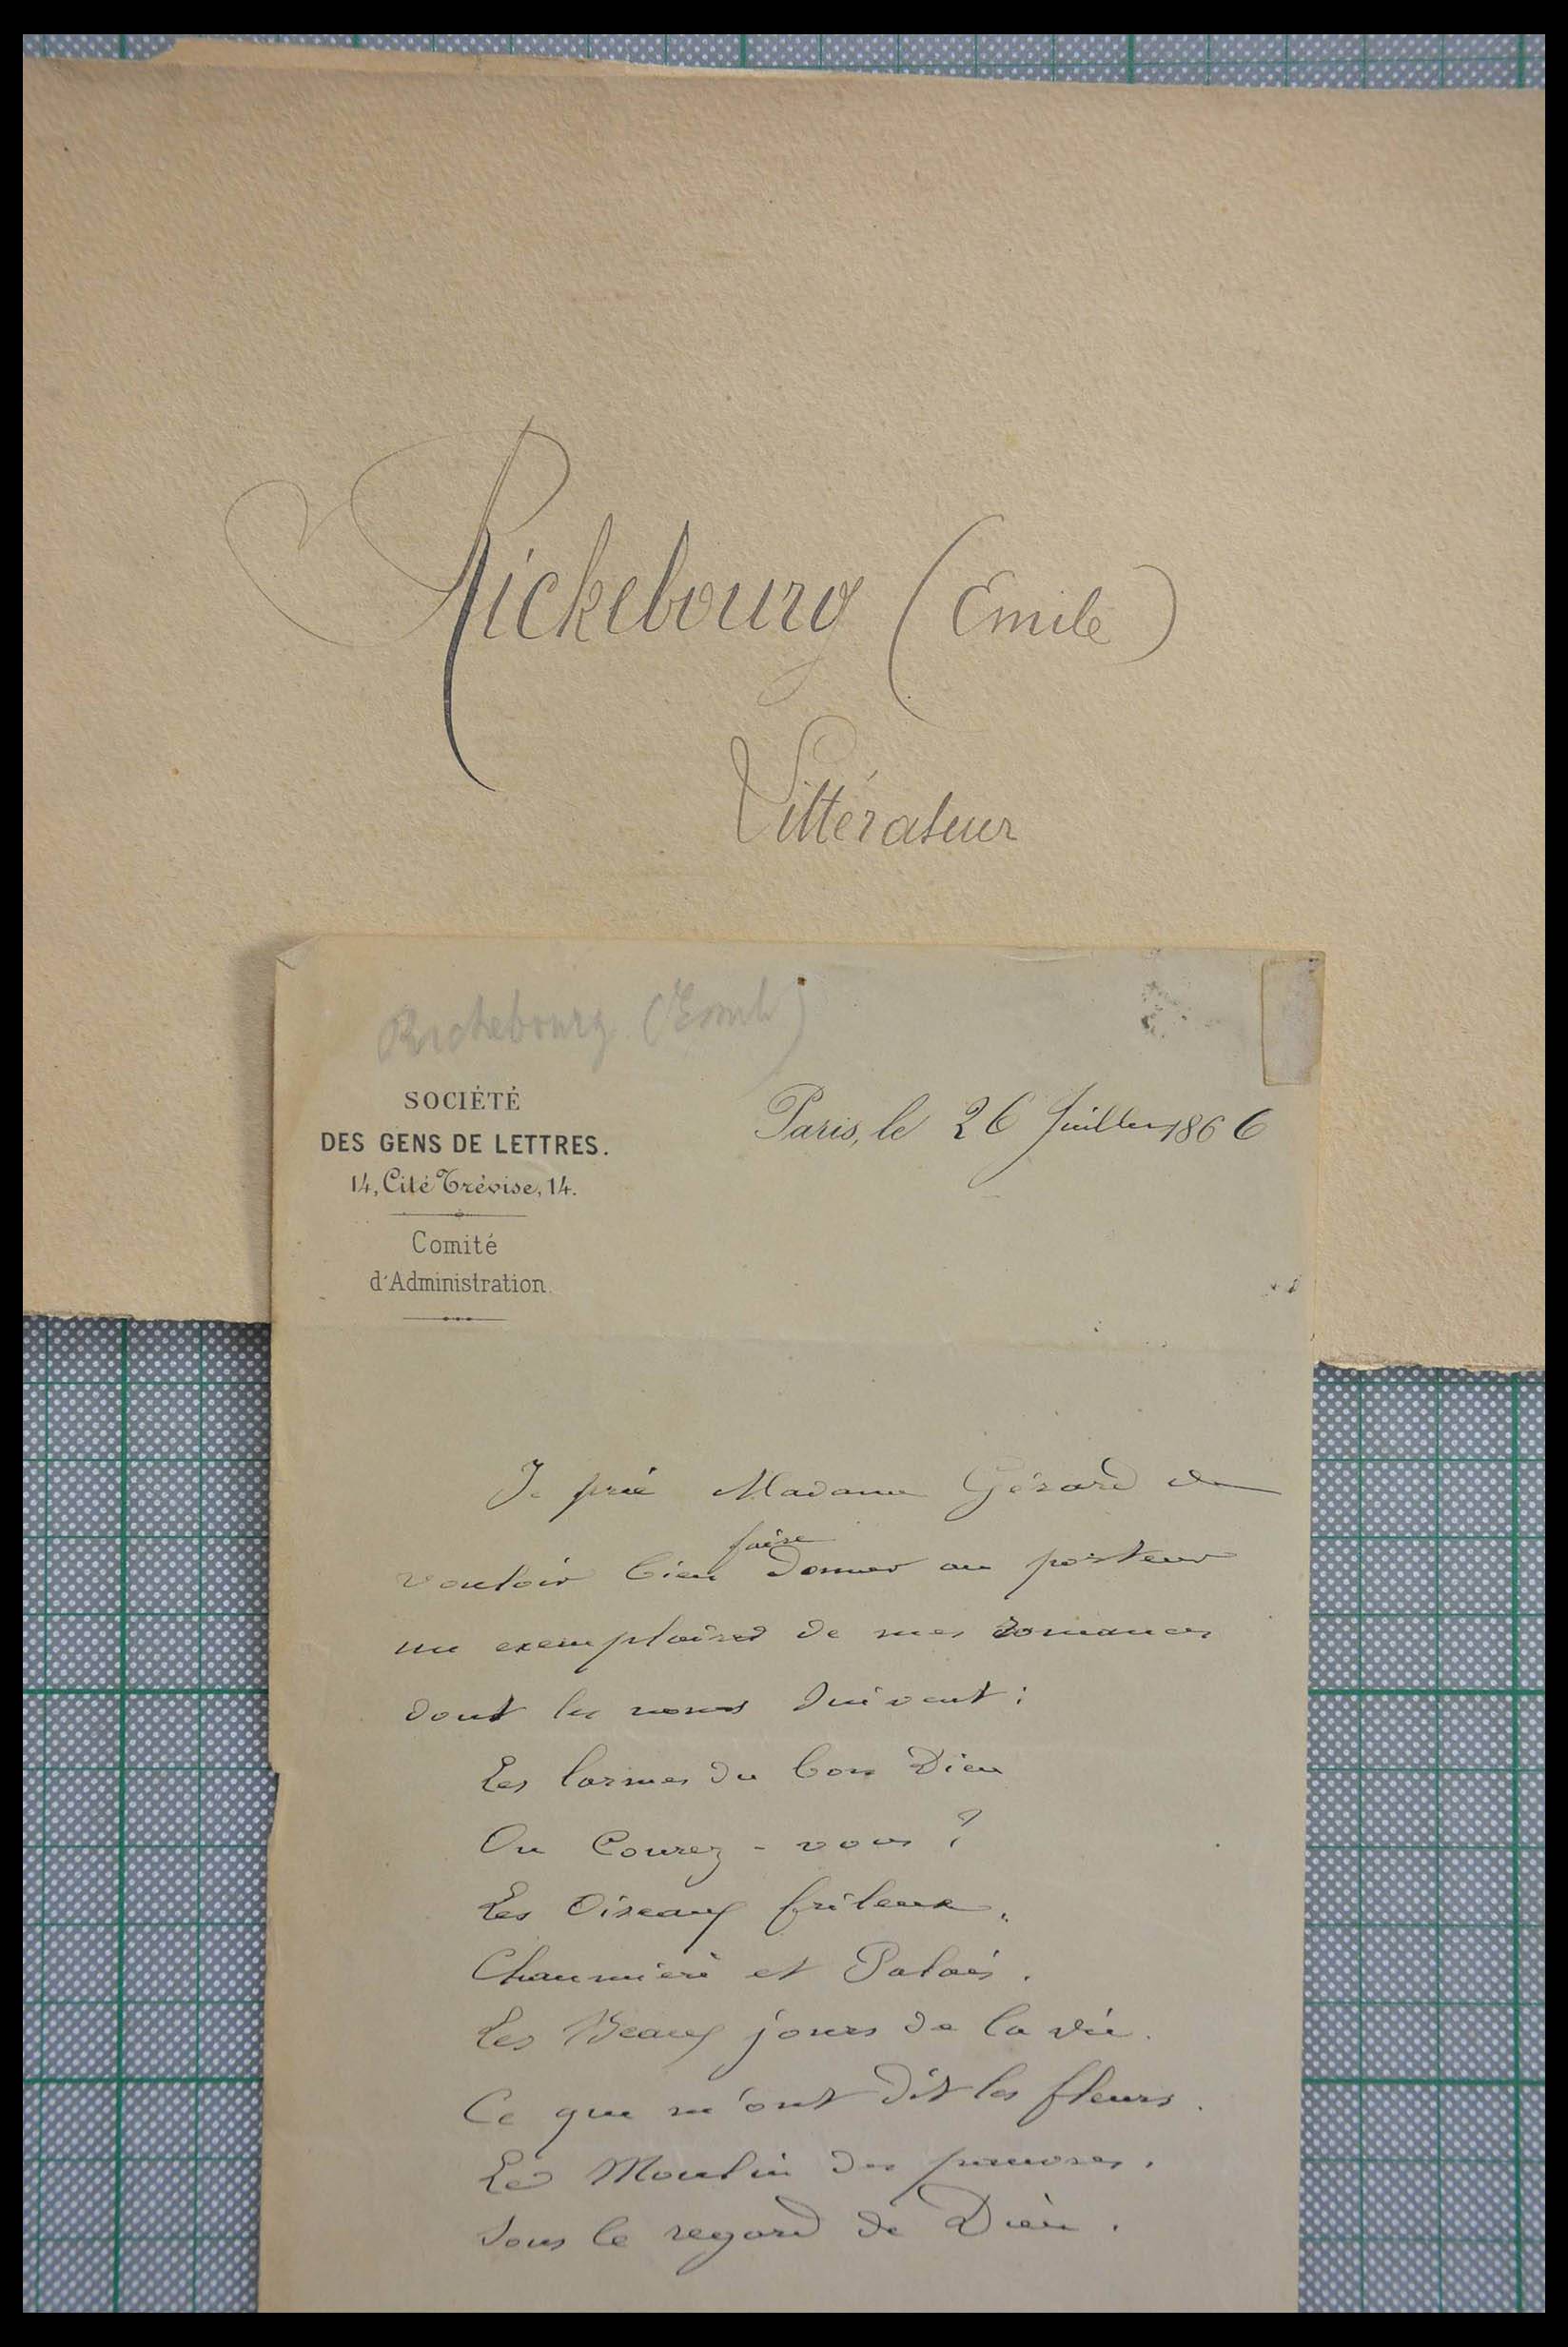 Rickebourg (Emile)
Littérateur
Richebourg (Emile)
SOCIÉTÉ
DES GENS DE LETTRES.
14, Cité Trévise, 14.
Comité
d'Administration.
Paris, le 26 Juillet 1866
Je prie Madame Gérard de
vouloir bien faire donner au porteur
un exemplaire de mes romances
dont les noms suivent :
Les larmes du bon Dieu
Ou Courez-vous ?
Les Oiseaux frileux.
Chaumière et Palais.
Les Beaux jours de la vie.
Ce que m'ont dit les fleurs.
Le Moulin des pauvres.
Sous le regard de Dieu.